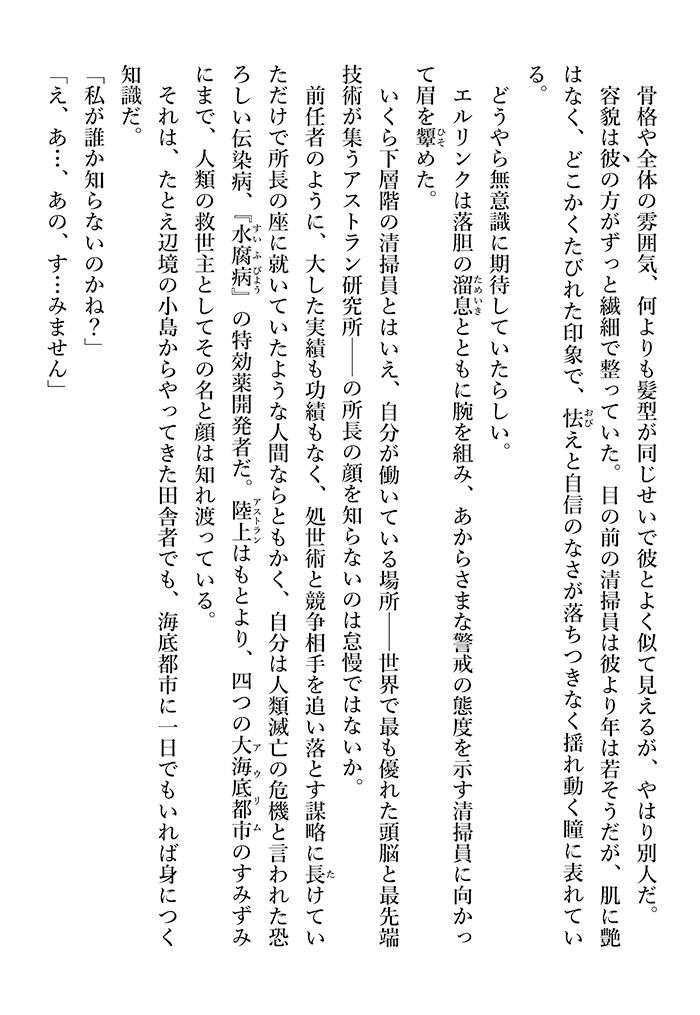 骨格や全体の雰囲気、何よりも髪型が同じせいで彼とよく似て見えるが、やはり別人だ。
　容貌は彼の方がずっと繊細で整っていた。目の前の清掃員は彼より年は若そうだが、肌に艶
はなく、どこかくたびれた印象で、怯えと自信のなさが落ちつきなく揺れ動く瞳に表れてい
る。
　どうやら無意識に期待していたらしい。
　エルリンクは落胆の溜息とともに腕を組み、あからさまな警戒の態度を示す清掃員に向かっ
て眉を顰めた。
　いくら下層階の清掃員とはいえ、自分が働いている場所――世界で最も優れた頭脳と最先端
技術が集うアストラン研究所――の所長の顔を知らないのは怠慢ではないか。
　前任者のように、大した実績も功績もなく、処世術と競争相手を追い落とす謀略に長けてい
ただけで所長の座に就いていたような人間ならともかく、自分は人類滅亡の危機と言われた恐
ろしい伝染病、『水腐病』の特効薬開発者だ。陸上はもとより、四つの大海底都市のすみずみ
にまで、人類の救世主としてその名と顔は知れ渡っている。
　それは、たとえ辺境の小島からやってきた田舎者でも、海底都市に一日でもいれば身につく
知識だ。
「私が誰か知らないのかね？」
「え、あ…、あの、す…みません」